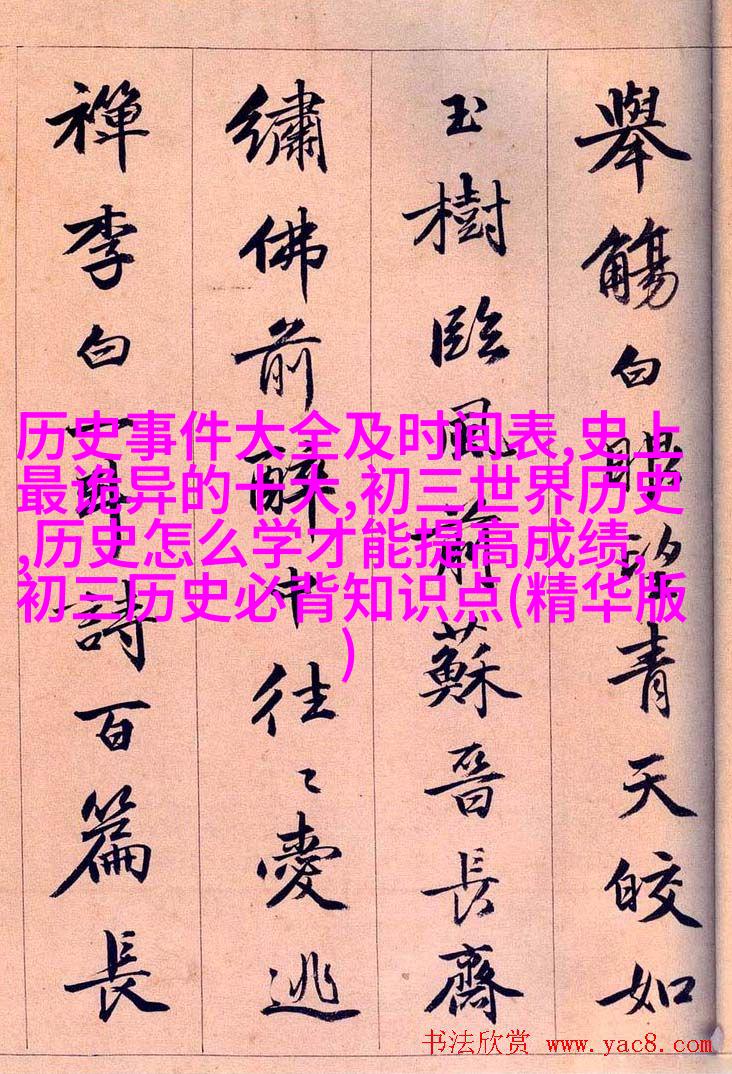 舉觴白眼望青天皎如
玉樹臨風前蘇晉長齋
繡佛前醉中往々愛逃
禪李白一斗詩百篇長
历史事件大全及时间表,史上
最诡异的十大,初三世界历史
,历史怎么学才能提高成绩,
初三历史必背知识点(精华版
)
书法欣赏 www.yac8.com